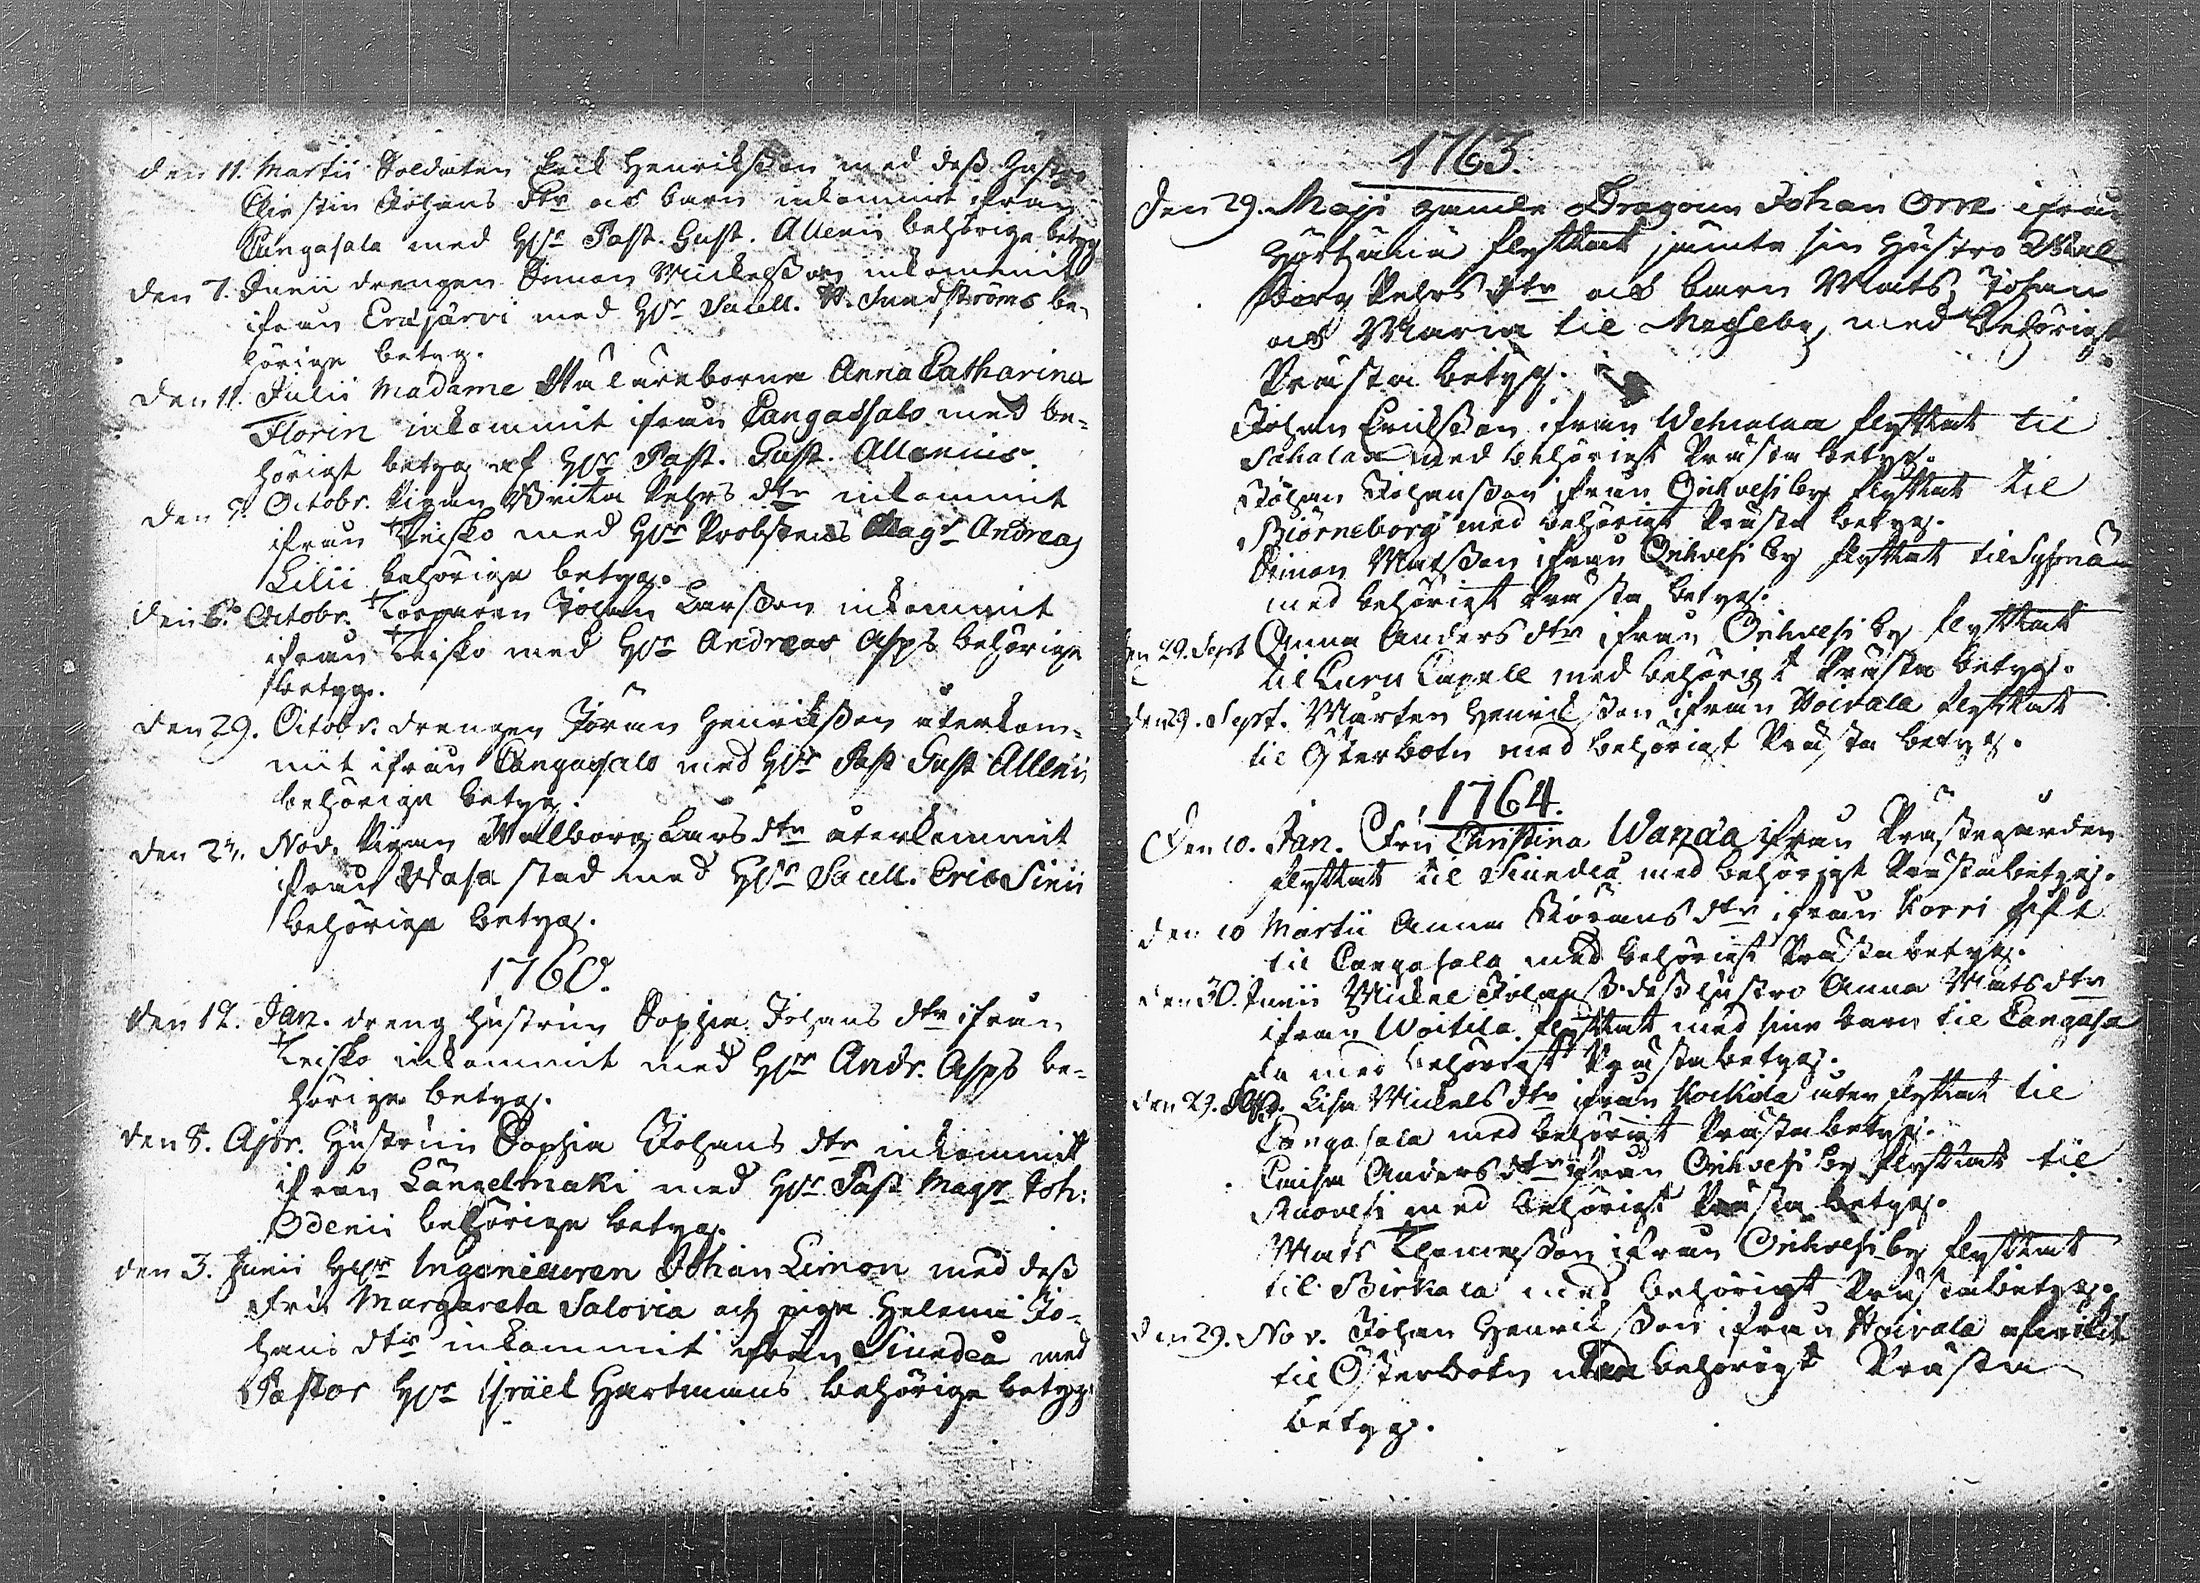 den 11. Martii Soldaten Erick Henriksson med dess Hustro
Kirstin Johans dtr och barn inkommit ifrån
Cangasala med Hr Past. Gust. Allenii behörige betyg
den 7. Junii drengen Simon Mickelsson inkommit
ifrån Eräjärvi med Hr Sacell. Sundströms be-
hörige betyg.
den 11. Julii Madame Anna Catharina
Florin inkommit ifrån Cangassalo med be-
hörigt betyg af Hr Past. Gust. Allenius.
den Octobr. Pigan Brita Pehrs dtr inkommit
ifrån Teisko med Hr Probstens Magr Andreas
Lilii behörige betyg.
den 6. Octobr. Torparen Johan Larsson inkommit
ifrån Teisko med Hr Andreas Asps behörige
betyg.
den 29. Octobr. drengen Jöran Henriksson återkom-
mit ifrån Cangassalo med Hr Past Gust Allenii
behörige betyg.
den Nov. Pigan Wallborg Lars dtr återkommit
ifrån Wasa stad med Hr Sacell. Eric Sinii
behörige betyg.
1760.
den 12. Jan. dreng hustrun Sophia Johans dtr ifrån
Teisko inkommit med Hr Andr. Asps be-
hörige betyg.
den 8. Apr. Hustrun Sophia Johans dtr inkommit
ifrån Längelmäki med Hr Past Magr Joh:
Odenii behörige betyg.
den 3. Junii Hr Ingenieuren Johan Limon med dess
Fru Margareta Salovia och pigan Helena Jo-
hans dtr inkommit ifrån Siundeå med
Pastor Hr Israel Hartmans behörige betyg.
1763.
Den 29. Maji gamla Dragoun Johan Orre ifrån
flyttat jämte sin Hustro Wal
borg Pehrs dtr och barn Mats, Johan
och Maria til Messuby, med behörigt
Prästa betyg.
Johan Ericksson ifrån Wehmaa flyttat til
Sahalax med behörigt Prästa betyg.
Johan Johansson ifrån Orihvesi by flyttat til
Biörneborg med behörigt Prästa betyg.
Simon Matsson ifrån Orihvesi by flyttat til Sysmä
med behörigt Prästa betyg.
den 29. Sept Anna Anders dtr ifrån Orihvesi by flyttat
til Kuru Capell med behörigt Prästa betyg.
den 29. Sept. Mårten Henriksson ifrån Hoivala flyttat
til Österbotn med behörigt Prästa betyg.
1764.
Den 10. Jan. Fru Christina Wanda ifrån Prästegården
flyttat til Siundeå med behörigt Prästabetyg.
den 10 Martii Anna Jörans dtr ifrån Korri gift
til Cangasala med behörigt Prästabetyg.
den 30. Junii Mickel Johanss. dess hustro Anna Mats dtr
ifrån Woitila flyttat med sine barn til Cangasa
la med behörigt Prästabetyg.
den 29. Lisa Mickels dtr ifrån Kockila uten flyttat til
Cangasala med behörigt Prästabetyg.
Caisa Anders dtr ifrån Orihvesi by flyttat til
Ruovesi med behörigt Prästa betyg.
Mats Clemetsson ifrån Orihvesi by flyttat
til Birkala med behörigt Prästabetyg.
den 29. Nov. Johan Henriksson ifrån Hoivala
til Österbotn utan behörigt Prästa
betyg.